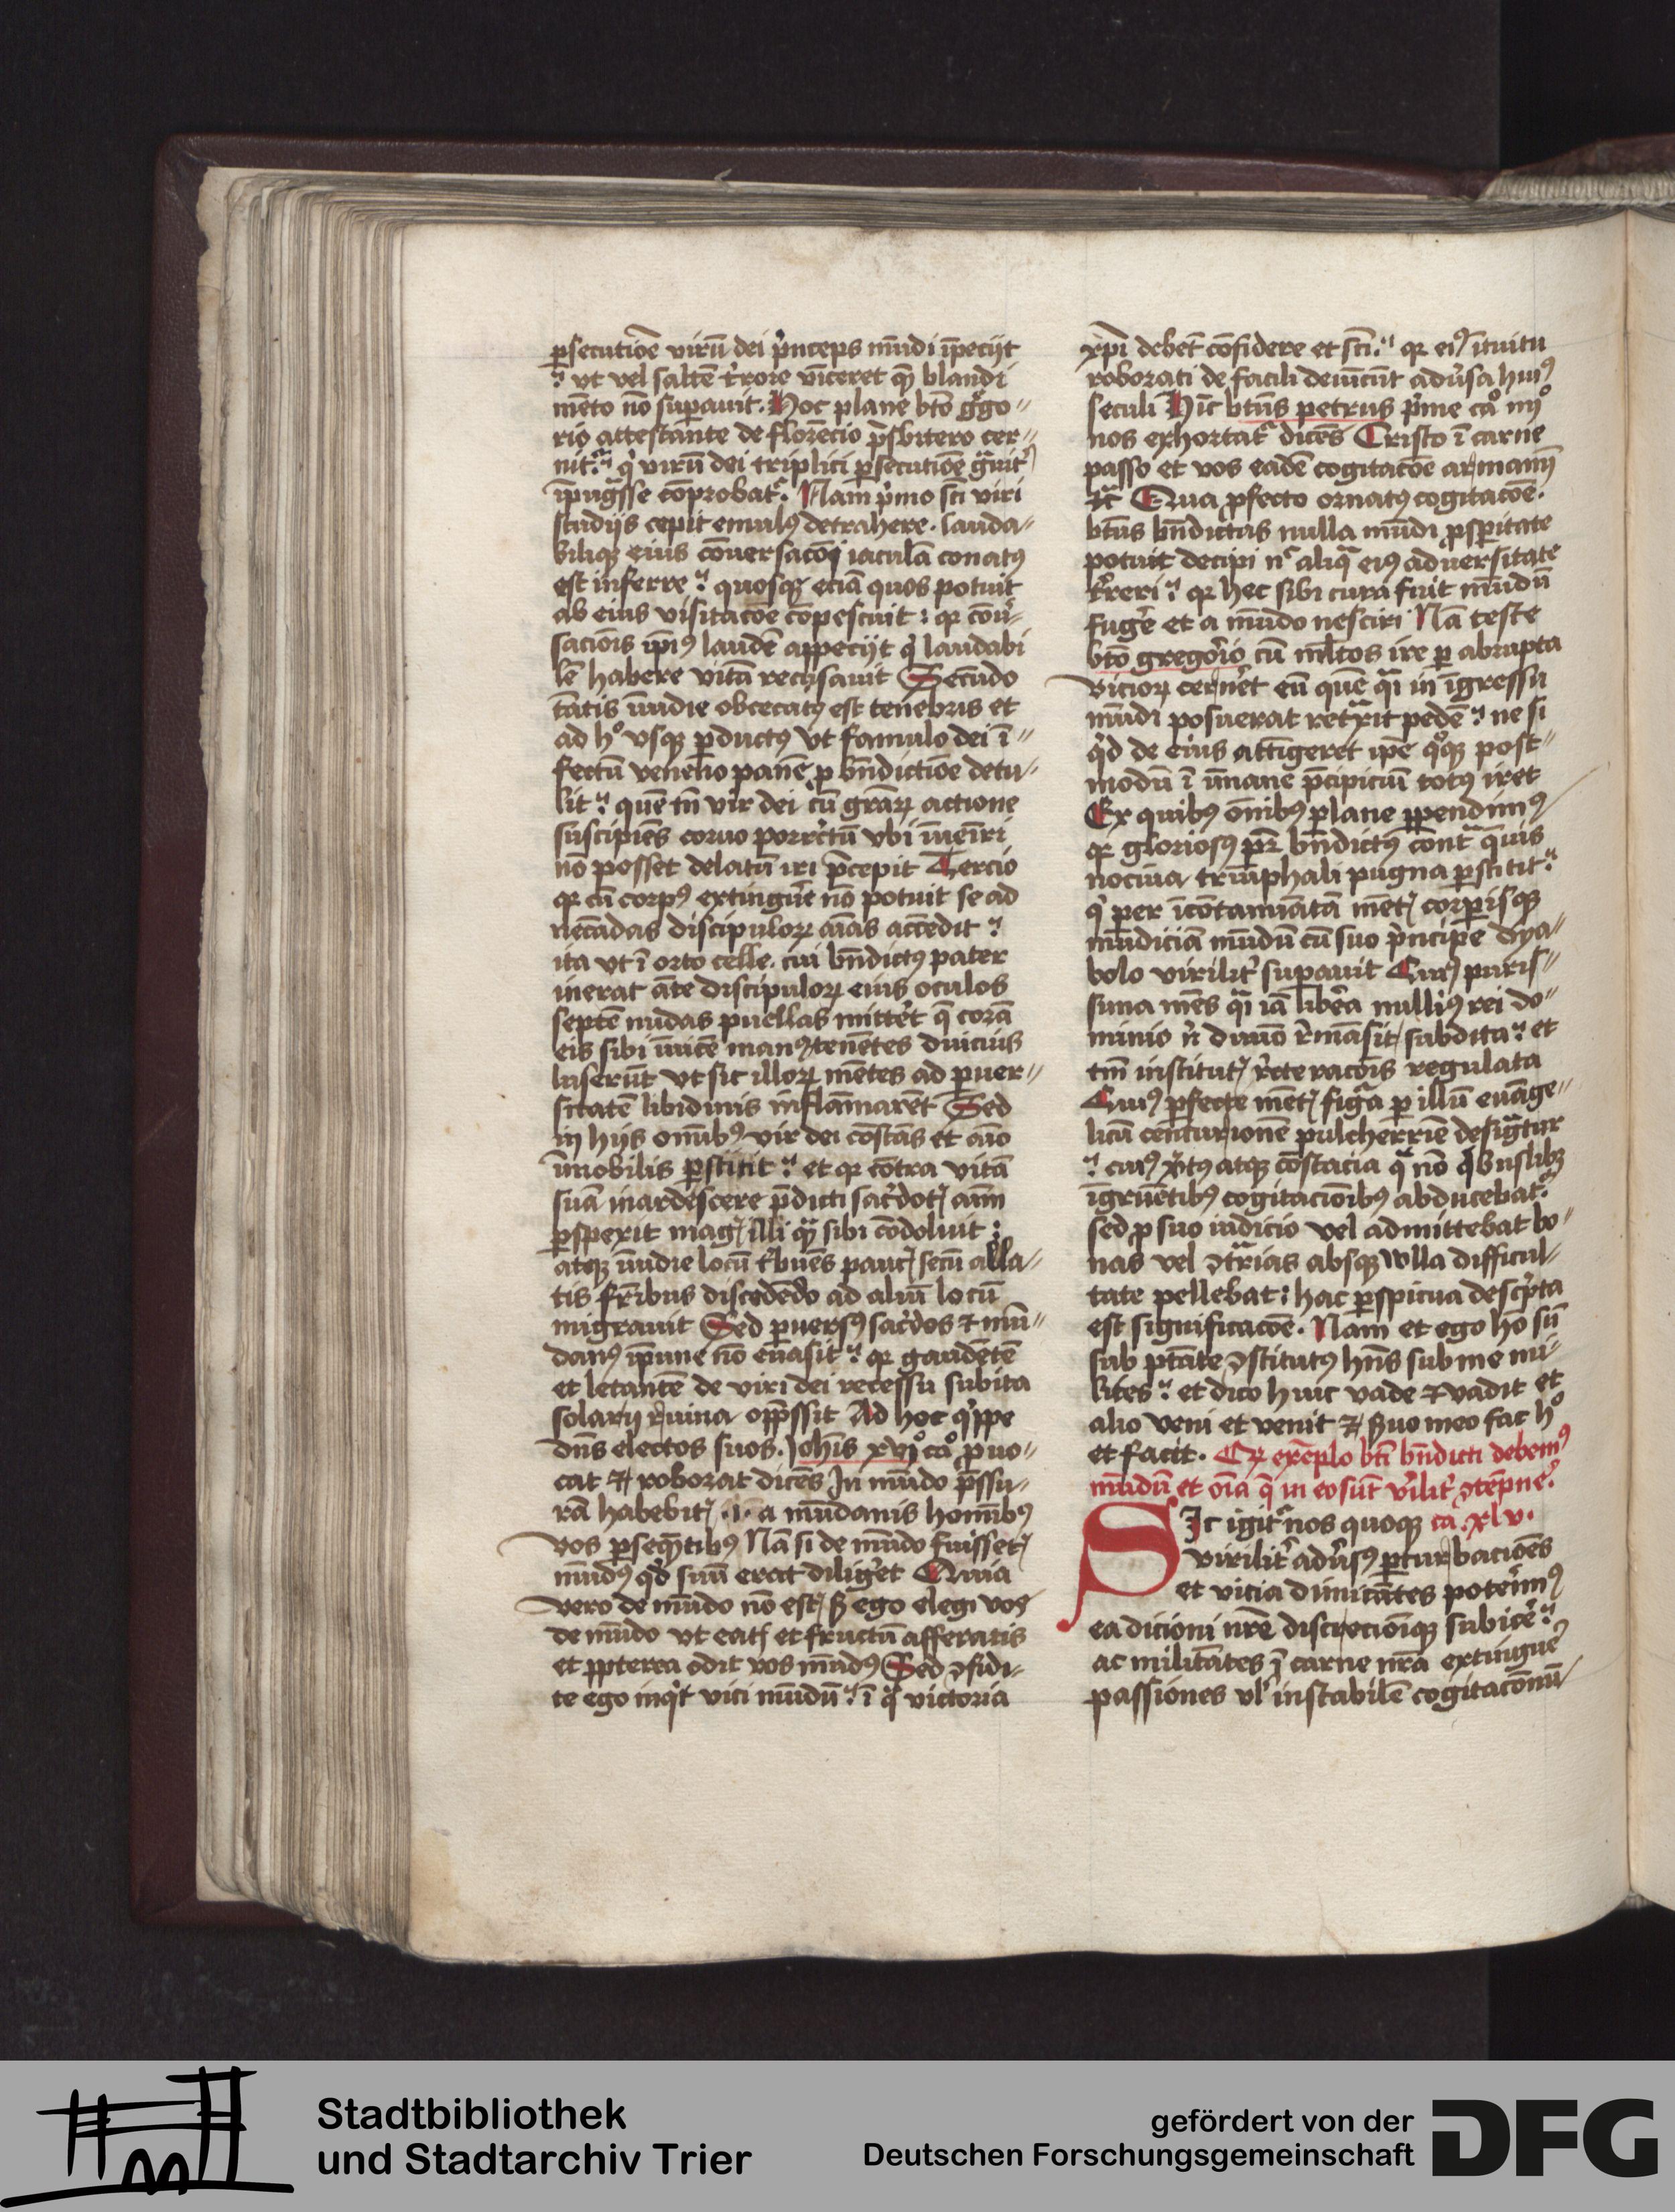 ꝑsecutiōe virū dei pͥnceps mūdi īpeciit
ut vel saltē tͬrore vīceret qͣ blandi
mēto nō suꝑauit. Hoc plane bto gͤgo
rio attestante de florēcio p̄sbitero cer
nitͬ qͥ virū dei triplici ꝑsecutiōe gͣuitͬ
īpugͣsse cōprobatͬ. Nam pͥmo sci viri
studiis cepit emulꝰ detrahere. lauda
biliqꝫ eius cōuersacōi iaculā conatꝰ
est inferre quosqꝫ eciā quos potuit
ab eius visitacōe cōpescuit: qꝛ cōuͬ
sacōis ip̄iꝰ laudē appeciit qͥ laudabi
lē habere vitā recusauit Secūdo
tātis īuidie obcecatꝰ est tenebris et
ad hͦ vsqꝫ ꝑductꝰ vt famulo dei ī
fectū veneno panē ꝓ bn̄dictiōe detu
lit quē tn̄ vir dei cū grāꝝ actione
suscipiēs coruo porrͤctū vbi īueīri
nō posset delatū iri p̄cepit Tercio
qꝛ cū corpꝰ extinguͤe nō potuit se ad
necādas discipuloꝝ aīas accēdit
ita vt ī orto celle. cui bn̄dictꝰ pater
inerat āte discipuloꝝ eius oculos
septē nudas puellas mittͤet q̄ corā
eis sibi īuicē manꝰ tenētes diucius
luserūt vt sic illoꝝ mētes ad ꝑuer
sitatē libidinis inflāmarēt Sed
in hiis oīnibꝰ vir dei cōstās et aīo
īmobilis ꝑstitit et qꝛ cōtra vitā
suā inardescere p̄dicti sacͬdotꝭ aīm
ꝑspexit magꝭ illi qͣ sibi cōdoluit:
atqꝫ īuidie locū tͥbuēs paucꝭ secū alla
tis frībus discedēdo ad aliū locū
migrauit Sed ꝑuersꝰ sacͬdos ⁊ mū
danꝰ īpune nō euasit qꝛ gaudētē
et letantē de viri dei recessu subita
solarij ruina opp̄ssit Ad hoc qͥppe
dn̄s electos suos. Joh̄is xvjͦ caͦ ꝓuo
cat ⁊ roborat dicēs In mūdo p̄ssu
rā habebitꝭ .i. a mūdanis homībꝰ
vos ꝑseqͣntibꝰ Nā si de mūdo fuissetꝭ
mūdꝰ qͦd suū erat diligͤet Quia
vero de mūdo nō estꝭ sꝫ ego elegi vos
de mūdo vt eatꝭ et fructū afferatis
et ꝓpterea odit vos mūdꝰ Sed ꝯfidi
te ego inqͥt vici mūdū ī qͣ victoria
xp̄i debēt cōfidere et sci qꝛ eiꝰ ītuitu
roborati de facili deuīcūt adͧsa huiꝰ
seculi Hīc btūs petrus pͥme caͦ iiijͦ
nos exhortatͬ dicēs Cristo ī carne
passo et vos eadē cogitacōe armami
⁊c Qua ꝓfecto ornatꝰ cogitacōe.
btūs bn̄dictus nulla mūdi ꝓsꝑitate
potuit decipi nͨ aliqͣ eiꝰ aduersitate
tͬreri qꝛ hec sibi cura fuit mūdū
fugͤe et a mūdo nesciri Nā teste
bto gregorio cū ml̄tos ire ꝑ abrupta
vicioꝝ cernͤet eū quē qͣi in īgressu
mūdi posuerat retͣxit pedē ne si
qͥd de eius attīgeret ip̄e qͦqꝫ post
modū ī īmane p̄cipiciū totꝰ iret
Ex quibꝰ oīnibꝰ plane ꝑpendimꝰ
qꝛ gloriosꝰ pr̄ bn̄dictꝰ contͣ qͣuis
nociua triūphali pugna ꝑstitit
qͥ per īcōtaminatā mētꝭ corꝑisqꝫ
mūdiciā mūdū cū suo pͥncipe dya
bolo virilitͬ suꝑauit Cuiꝰ puris
sima mēs qͣi iā libera nulliꝰ rei do
minio nͥ diuīo rͤmāsit subdita et
tm̄ institutꝭ rͤcte racōis regulata
Cuiꝰ ꝑfecte mētꝭ figͣa ꝑ illū euāge
licū centurionē pulcherrīe desigͣtur
cuiꝰ vͥtꝰ atqꝫ cōstācia qͣ nō qͥbuslibꝫ
īgruētibꝰ cogitacōibꝰ abducebatͬ
sed ꝓ suo iudicio vel admittebat bo
nas vel ꝯtͣrias absqꝫ vlla difficul
tate pellebat: hac ꝑspicua descͥpta
est significacōe. Nam et ego hō sū
sub ptāte ꝯstitutꝰ hn̄s sub me mi
lites et dico huic vade ⁊ vadit et
alio veni et venit ⁊ ẜuo meo fac hͦ
et facit. Ex exēplo bti bn̄dicti debemꝰ
mūdū et oīa q̄ in eo sūt vͥilitͬ ꝯtēpneͬ.
SIc igitͬ nos quoqꝫ ca. xlv.
virilitͬ adͧsꝰ ꝑturbacōes
et vicia dimicātes poterimꝰ
ea dicioni nr̄e discreciōiqꝫ subicͤe
ac militātes ī carne nr̄a extinguͤe
passiones vl̓ instabilē cogitacōnū
Stadtbibliothek
und Stadtarchiv Trier
gefördert von der
Deutschen Forschungsgemeinschaft
DFG